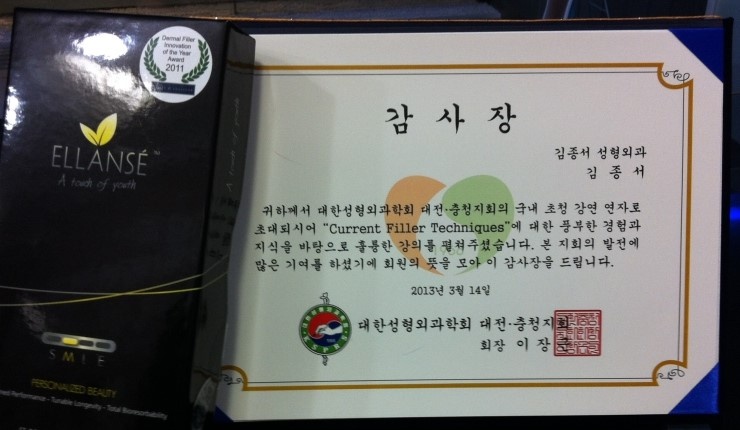 Dermal Filler
Innovation
of the Year
Award
2011
ELLANSÉ™
A touch of youth
S M I E
PERSONALIZED BEAUTY
Performance - Tunable Longevity - Total Bioresorbability
A touch of youth
감 사 장
김종서 성형외과
김 종 서
귀하께서 대한성형외과학회 대전·충청지회의 국내 초청 강연 연자로
초대되시어 "Current Filler Techniques"에 대한 풍부한 경험과
지식을 바탕으로 훌륭한 강의를 펼쳐주셨습니다. 본 지회의 발전에
많은 기여를 하셨기에 회원의 뜻을 모아 이 감사장을 드립니다.
2013년 3월 14일
대한성형외과학회 대전·충청지회
회장 이 장